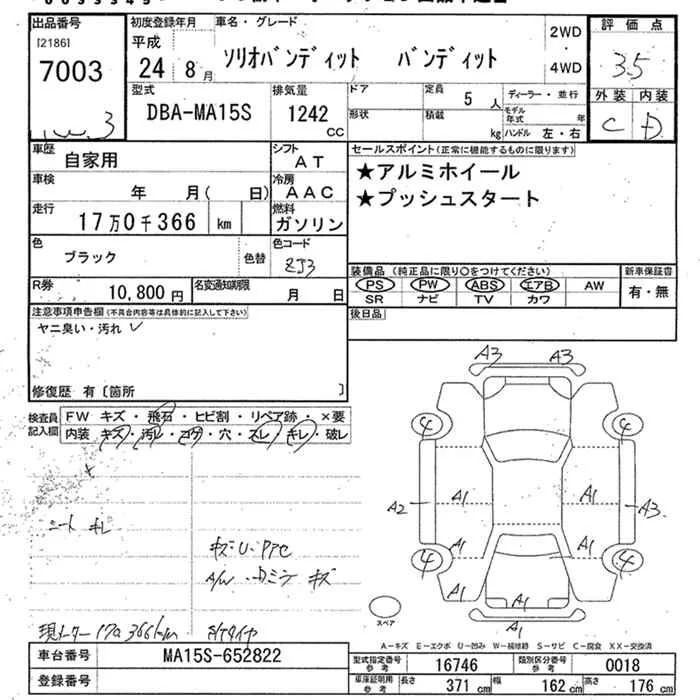 出品番号
[2186]
7003
初度登録年月
平成
24 8月
車名・グレード
ソリオバンディット バンディット
2WD
・
4WD
評価点
3.5
外装 内装
C D
型式
DBA-MA15S
排気量
1242
CC
ドア
形状
定員 5人
積載 kg
ディーラー・並行
モデル年式 年
ハンドル 左・右
車歴 自家用
シフト AT
車検 年 月( 日)
冷房 AAC
走行 17万0千366 km
燃料 ガソリン
色 ブラック 色替
色コード ZJ3
R券 10,800円
名変通知期限 月 日
セールスポイント(正常に機能するものに限ります)
★アルミホイール
★プッシュスタート
装備品(純正品に限り○をつけてください)
新車保証書
PS PW ABS エアB AW
有・無
SR ナビ TV カワ
後日品
注意事項申告欄(不具合内容等は具体的に記入して下さい)
ヤニ臭い・汚れ
修復歴 有〔箇所 〕
検査員記入欄
FW キズ・飛石・ヒビ割・リペア跡・×要
内装 キズ・汚レ・コゲ・穴・スレ・キレ・破レ
シート キレ
A/W キズ
現メーター 170366km
A3 A3
4 4
A1 A1
A2 A3
A1 A1
4 4
A1 A1
A1
スペア
A-キズ E-エクボ U-凹み W-補修跡 S-サビ C-腐食 XX-交換済
車台番号 MA15S-652822
登録番号
型式指定番号参考 16746
類別区分番号参考 0018
車庫証明用参考 長さ 371cm 幅 162cm 高さ 176cm